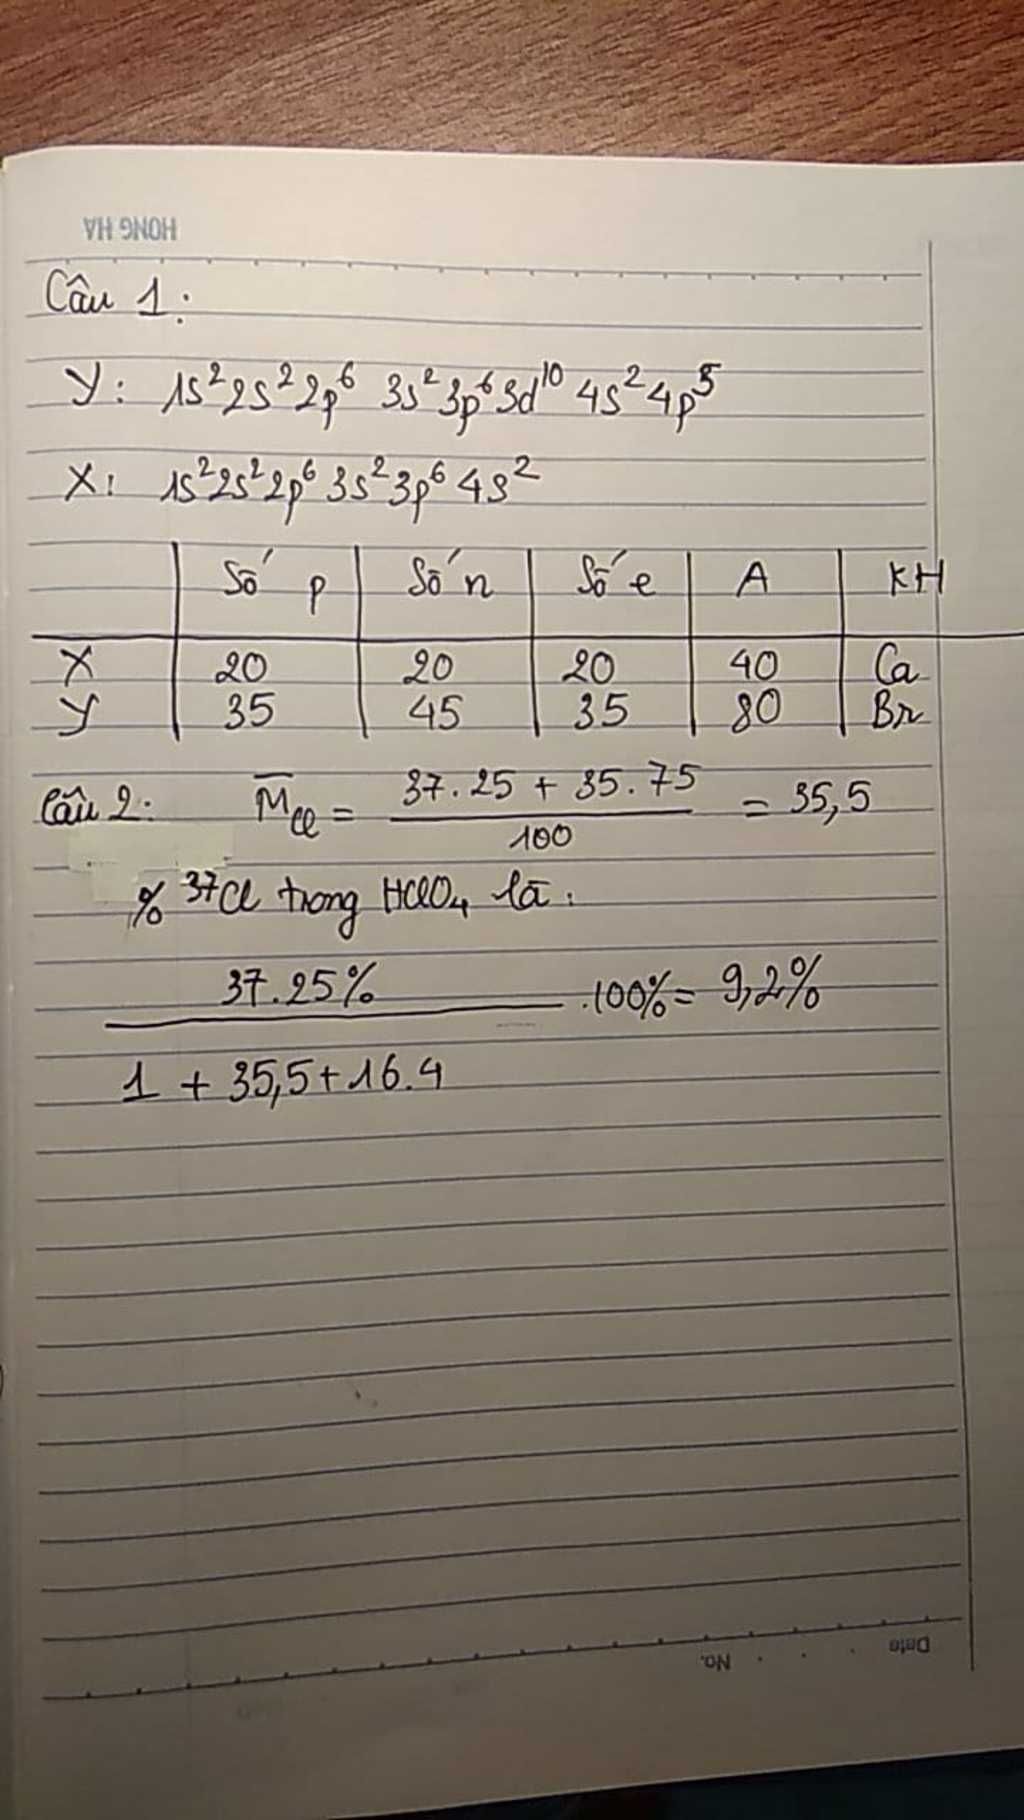 HONG HA
Câu 1:
Y: 1s²2s²2p⁶ 3s²3p⁶3d¹⁰ 4s²4p⁵
X: 1s²2s²2p⁶3s²3p⁶4s²
Số p Số n Số e A KH
X 20 20 20 40 Ca
Y 35 45 35 80 Br
Câu 2: M̅Cl = (37.25 + 35.75)/100 = 35,5
% ³⁷Cl trong HClO₄ là:
37.25% .100% = 9,2%
1 + 35,5 + 16.4
No. Date